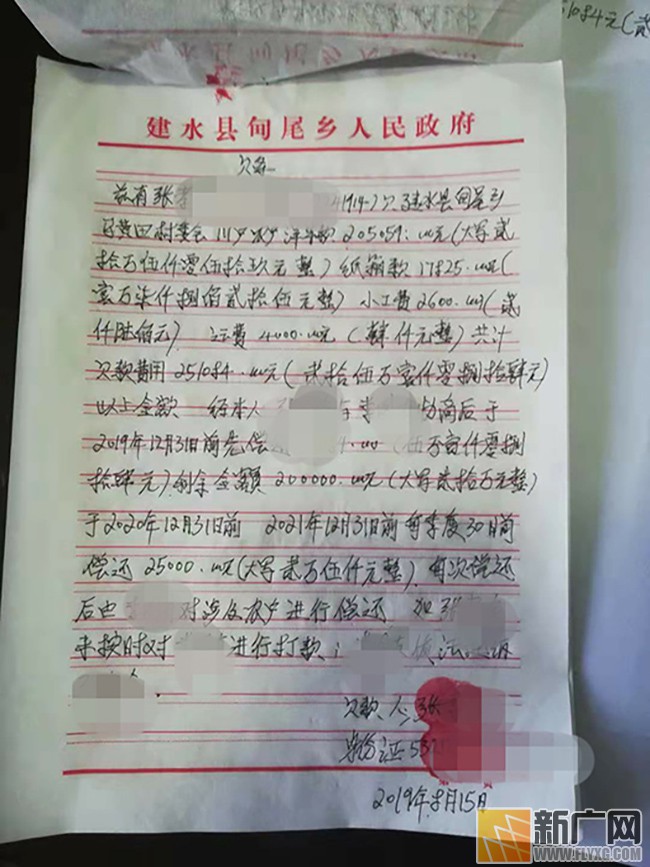 51084元(贰
建水县甸尾乡人民政府
欠条
兹有张 41914)欠建水县甸尾乡
黄田村委会 农户洋葱款205059.00元(大写贰
拾万伍仟零伍拾玖元整)纸箱款17825.00元(
壹万柒仟捌佰贰拾伍元整)小工费2600.00元(贰
仟陆佰元), 运费4000.00元(肆仟元整)共计
欠款费用251084.00元(贰拾伍万壹仟零捌拾肆元)
以上金额 经本人 协商后于
2019年12月31日前先偿 .00 (伍万壹仟零捌
拾肆元)剩余金额200000.00元(大写贰拾万元整)
于2020年12月31日前 2021年12月31日前每季度30日前
偿还25000.00元(大写贰万伍仟元整),每次偿还
后由 对涉及农户进行偿还 如张
未按时对 进行打款; 依法
欠款人:张
身份证53
2019年8月15日
新广网
WWW.FLYXG.COM